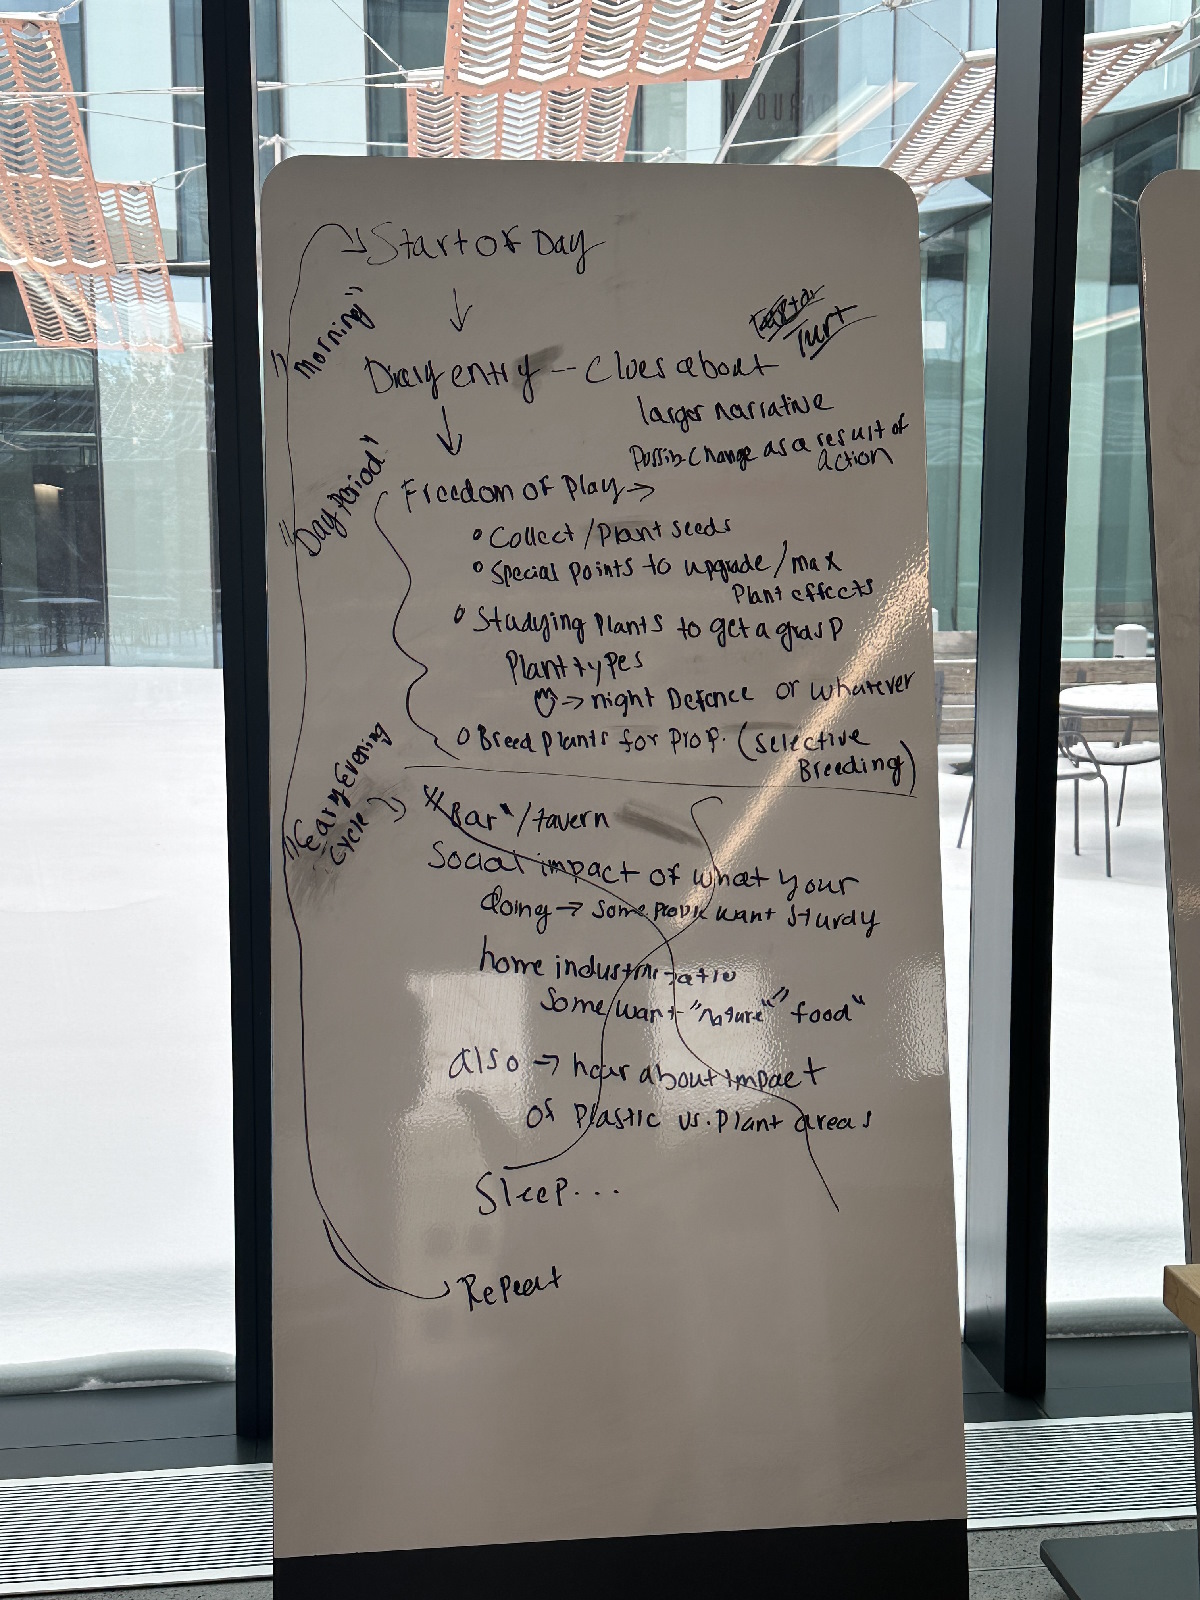 Start of Day
"Morning"
Diary entry -- Clues about
Turt
larger narrative
Possib. Change as a result of
action
"Day Period"
Freedom of Play →
• Collect / Plant seeds
• Special points to upgrade / max
Plant effects
• Studying Plants to get a grasp
Plant types
→ night Defence or whatever
• Breed Plants for prop. (selective
Breeding)
"Early Evening
Cycle"
"Bar" / tavern
Social impact of what your
doing → some want sturdy
home
Some want "nature" "food"
also → hear about impact
of Plastic vs. Plant areas
Sleep...
Repeat